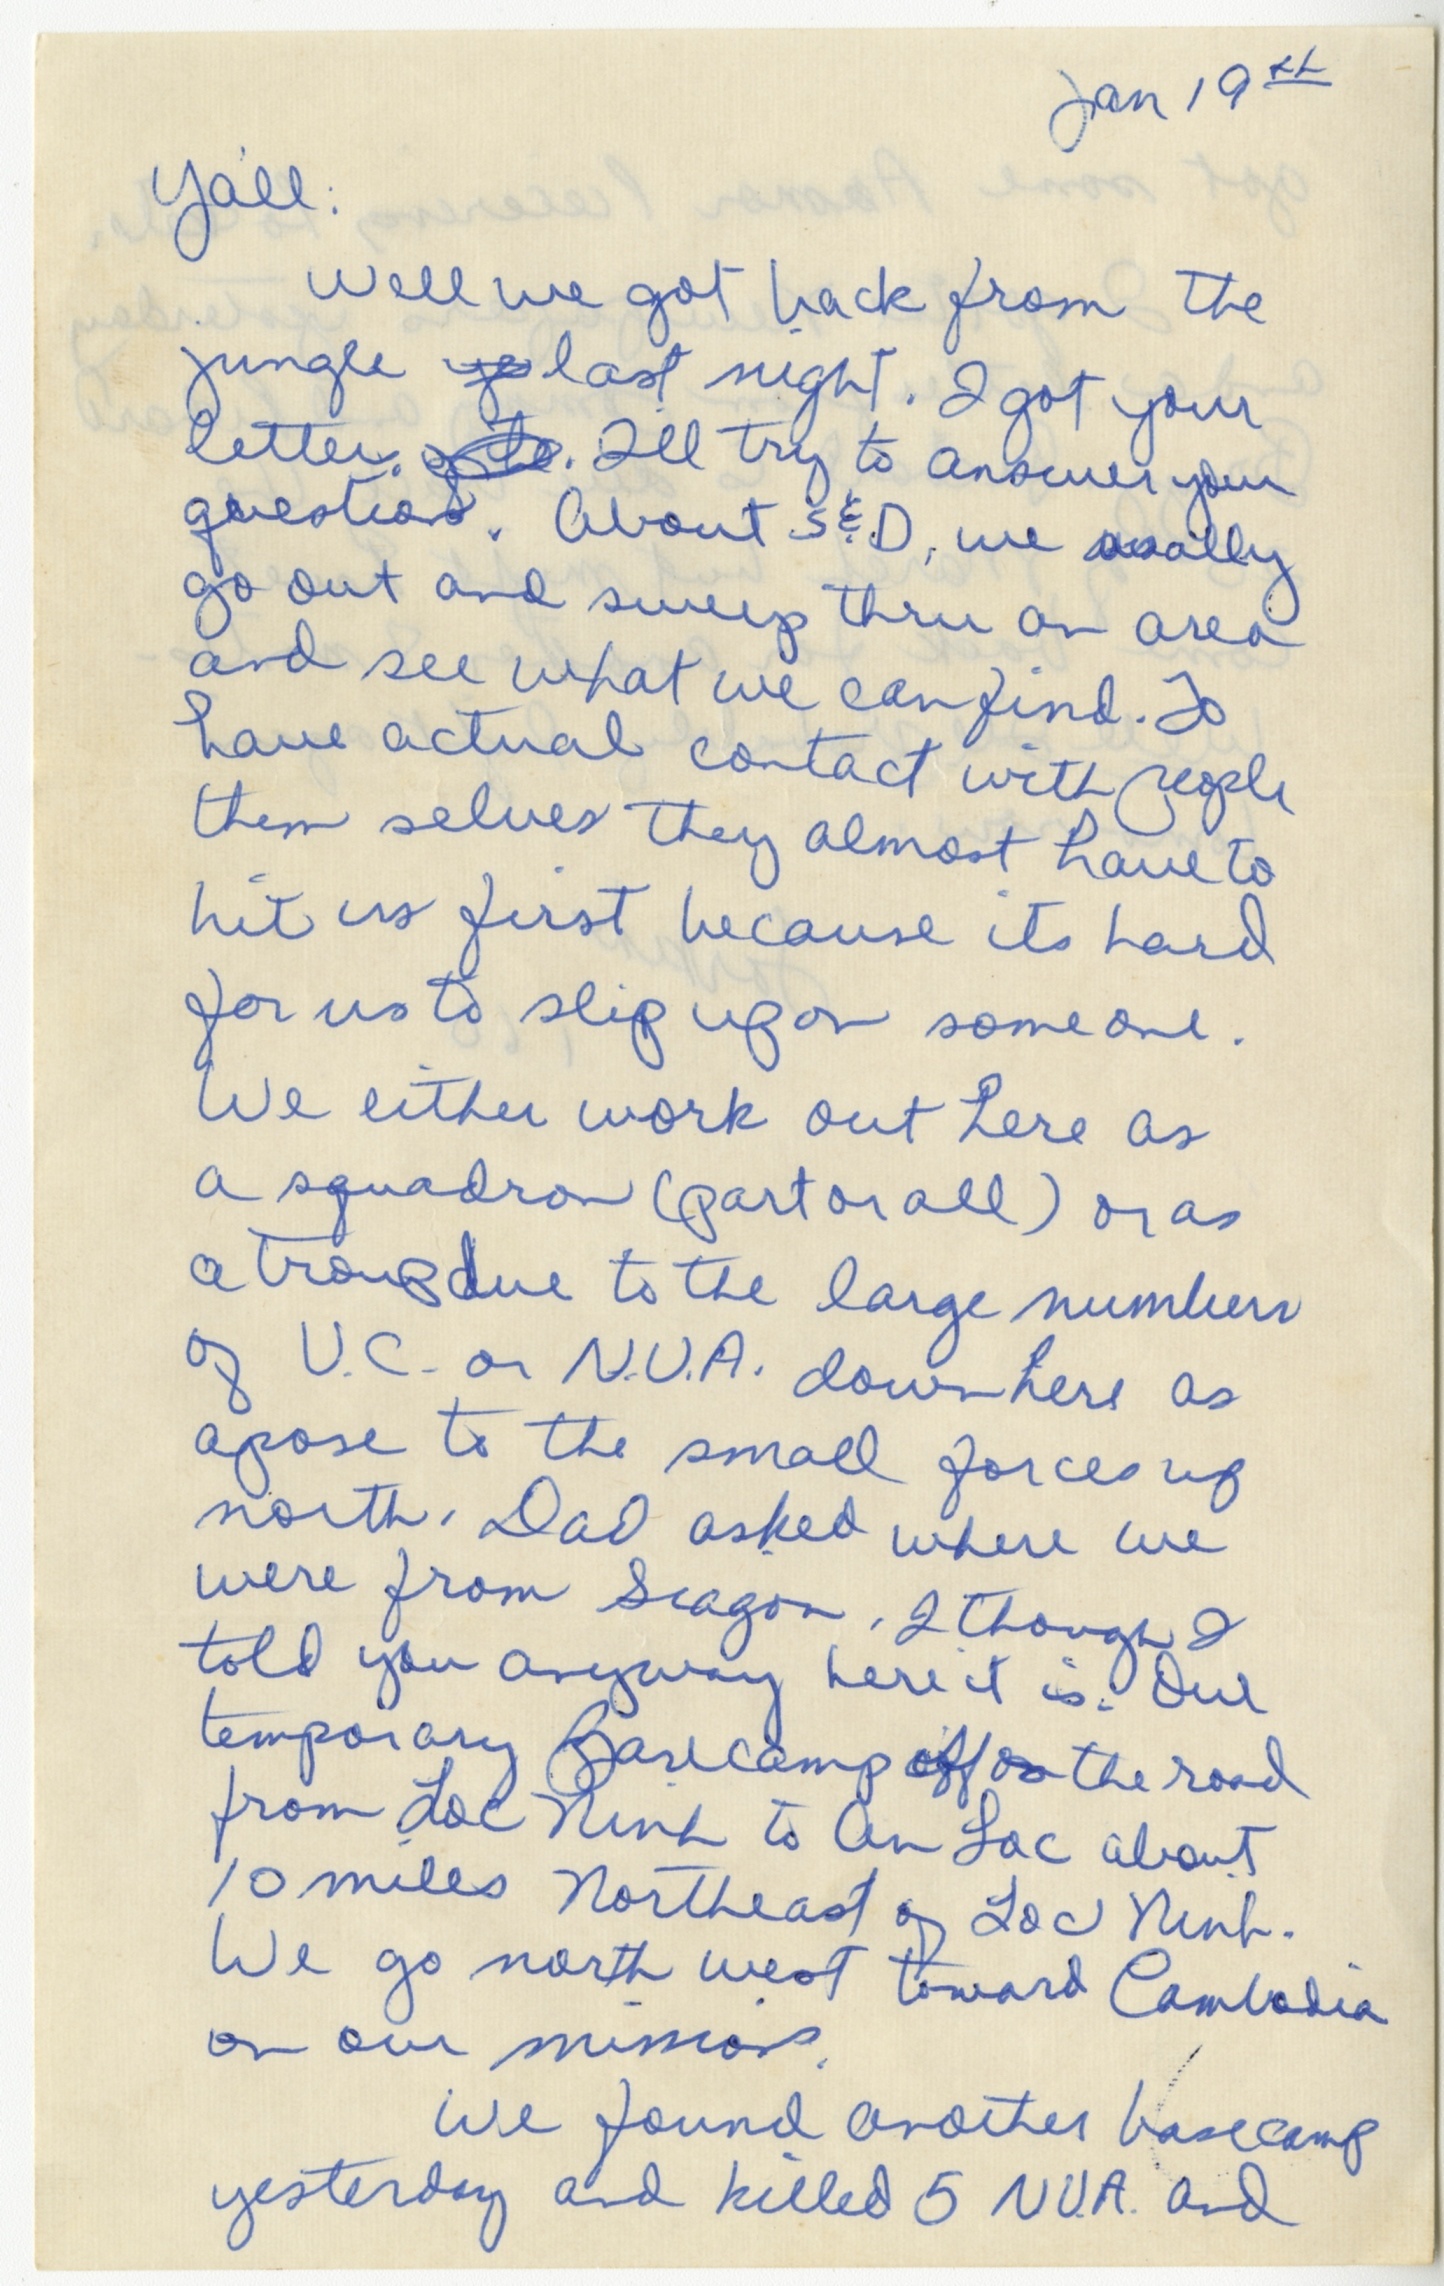 Jan 19th
Ya'll:
Well we got back from the
jungle last night. I got your
letter. I'll try to answer your
questions. About S&D, we usally
go out and sweep thru an area
and see what we can find. To
have actual contact with people
them selves they almost have to
hit us first because its hard
for us to slip up on someone.
We either work out here as
a squadron (part or all) or as
a troup due to the large numbers
of V.C. or N.V.A. down here as
apose to the small forces up
north. Dad asked where we
were from Siagon, I though I
told you anyway here it is. Our
temporary Basecamp off on the road
from Loc Ninh to An Loc about
10 miles Northeast of Loc Ninh.
We go north west toward Cambodia
on our missions.
We found another basecamp
yesterday and killed 5 NVA. and